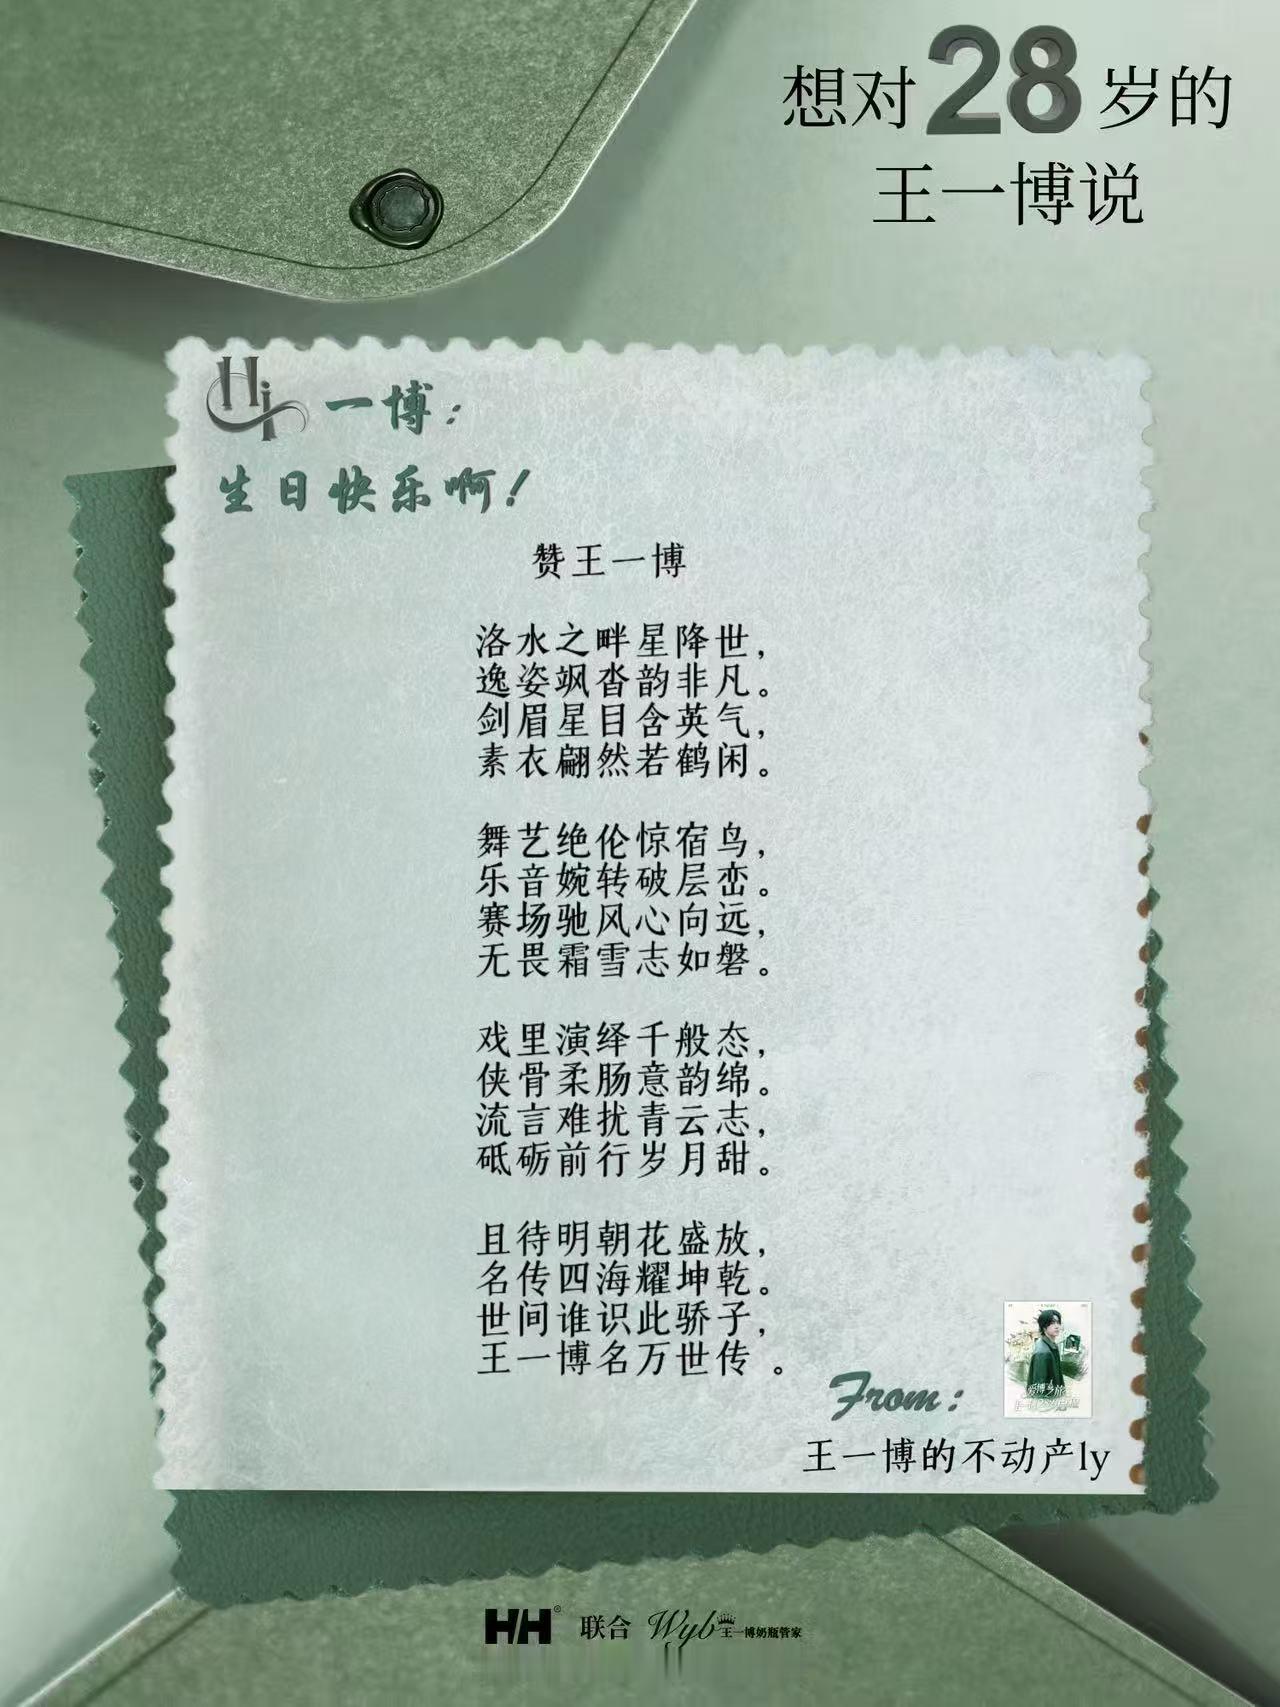 想对28岁的
王一博说
Hi 一博：
生日快乐啊！
赞王一博
洛水之畔星降世，
逸姿飒沓韵非凡。
剑眉星目含英气，
素衣翩然若鹤闲。
舞艺绝伦惊宿鸟，
乐音婉转破层峦。
赛场驰风心向远，
无畏霜雪志如磐。
戏里演绎千般态，
侠骨柔肠意韵绵。
流言难扰青云志，
砥砺前行岁月甜。
且待明朝花盛放，
名传四海耀坤乾。
世间谁识此骄子，
王一博名万世传 。
From：
王一博的不动产ly
HH® 联合 Wyb 王一博奶瓶管家